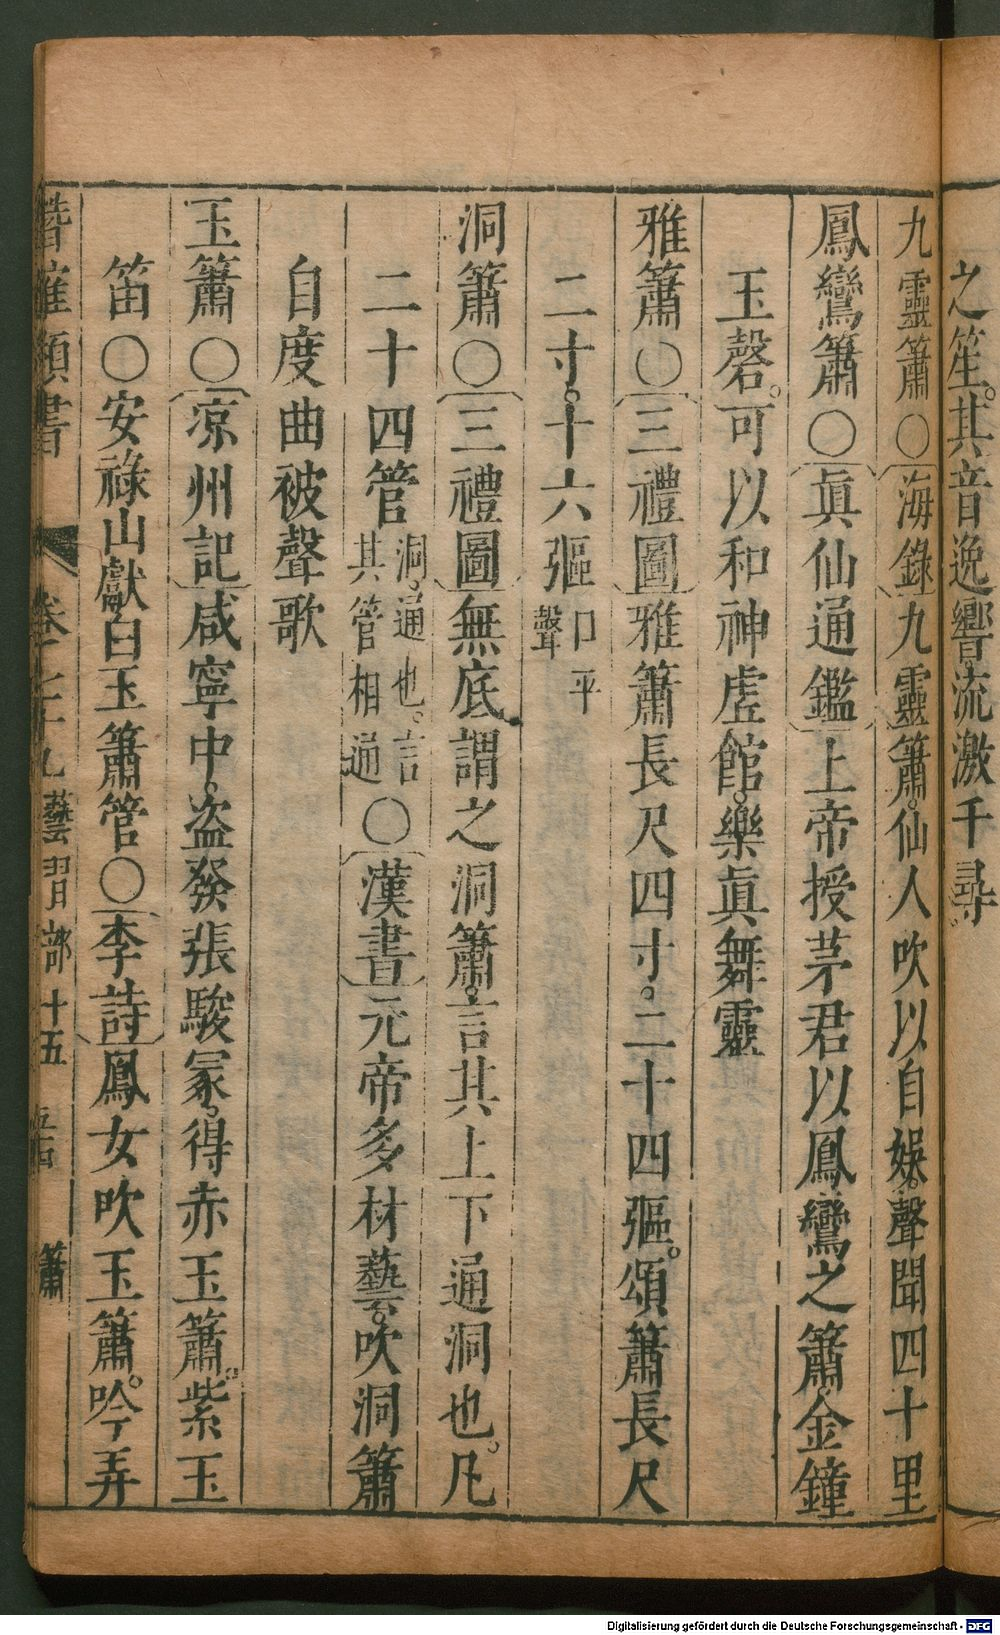 之笙其音逸響流激千尋
九靈簫○海錄九靈簫仙人吹以自娛聲聞四十里
鳳鸞簫○眞仙通鑑上帝授茅君以鳳鸞之簫金鐘
玉磬可以和神虛館樂眞舞靈
雅簫○三禮圖雅簫長尺四寸二十四彄頌簫長尺
二寸十六彄口平聲
洞簫○三禮圖無底謂之洞簫言其上下通洞也凡
二十四管洞通也言其管相通○漢書元帝多材藝吹洞簫
自度曲被聲歌
玉簫○凉州記咸寧中盜發張駿冢得赤玉簫紫玉
笛○安祿山獻白玉簫管○李詩鳳女吹玉簫吟弄
潛確類書 卷七十九 藝習部十五 簫
Digitalisierung gefördert durch die Deutsche Forschungsgemeinschaft - DFG